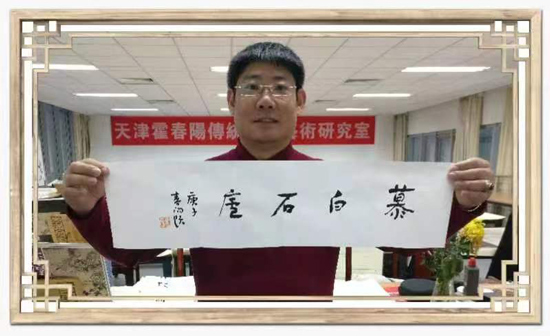 天津霍春陽傳統 術研究室
慕白石廬
庚子